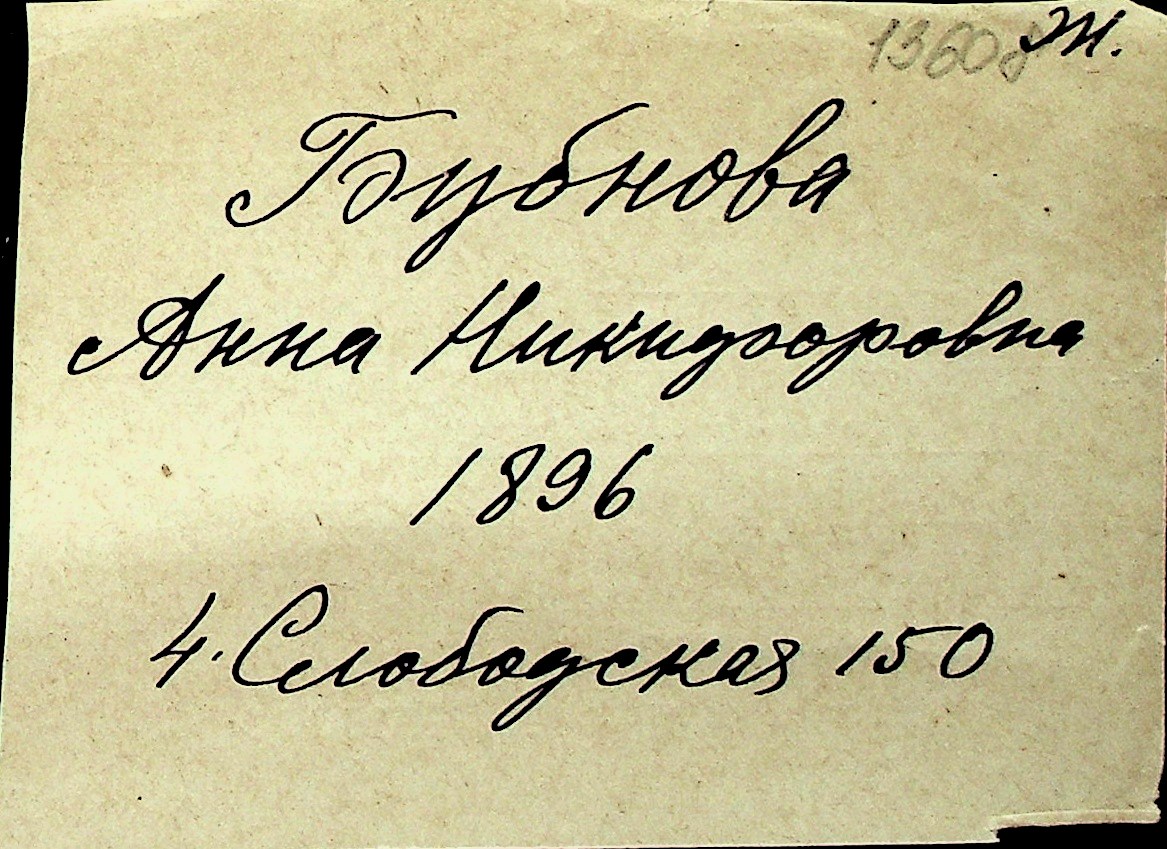 13608 Ж.
Бубнова
Анна Никифоровна
1896
4. Слободская 150